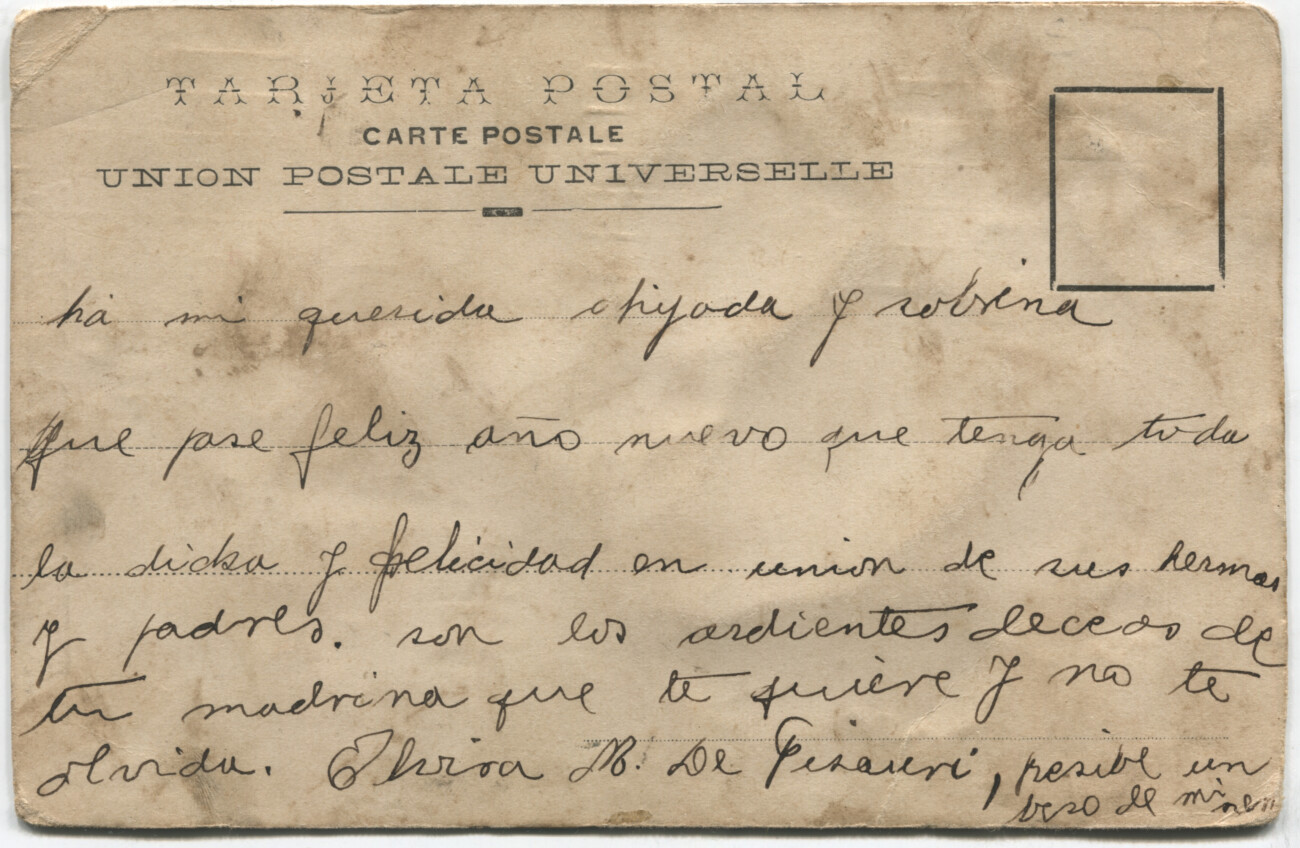 TARJETA POSTAL
CARTE POSTALE
UNION POSTALE UNIVERSELLE
ha mi querida ahijada y sobrina
que pase feliz año nuevo que tenga toda
la dicha y felicidad en union de sus hermas
y padres. son los ardientes deceos de
tu madrina que te quiere y no te
olvida. Elvira M. De, resibe un
beso de mi